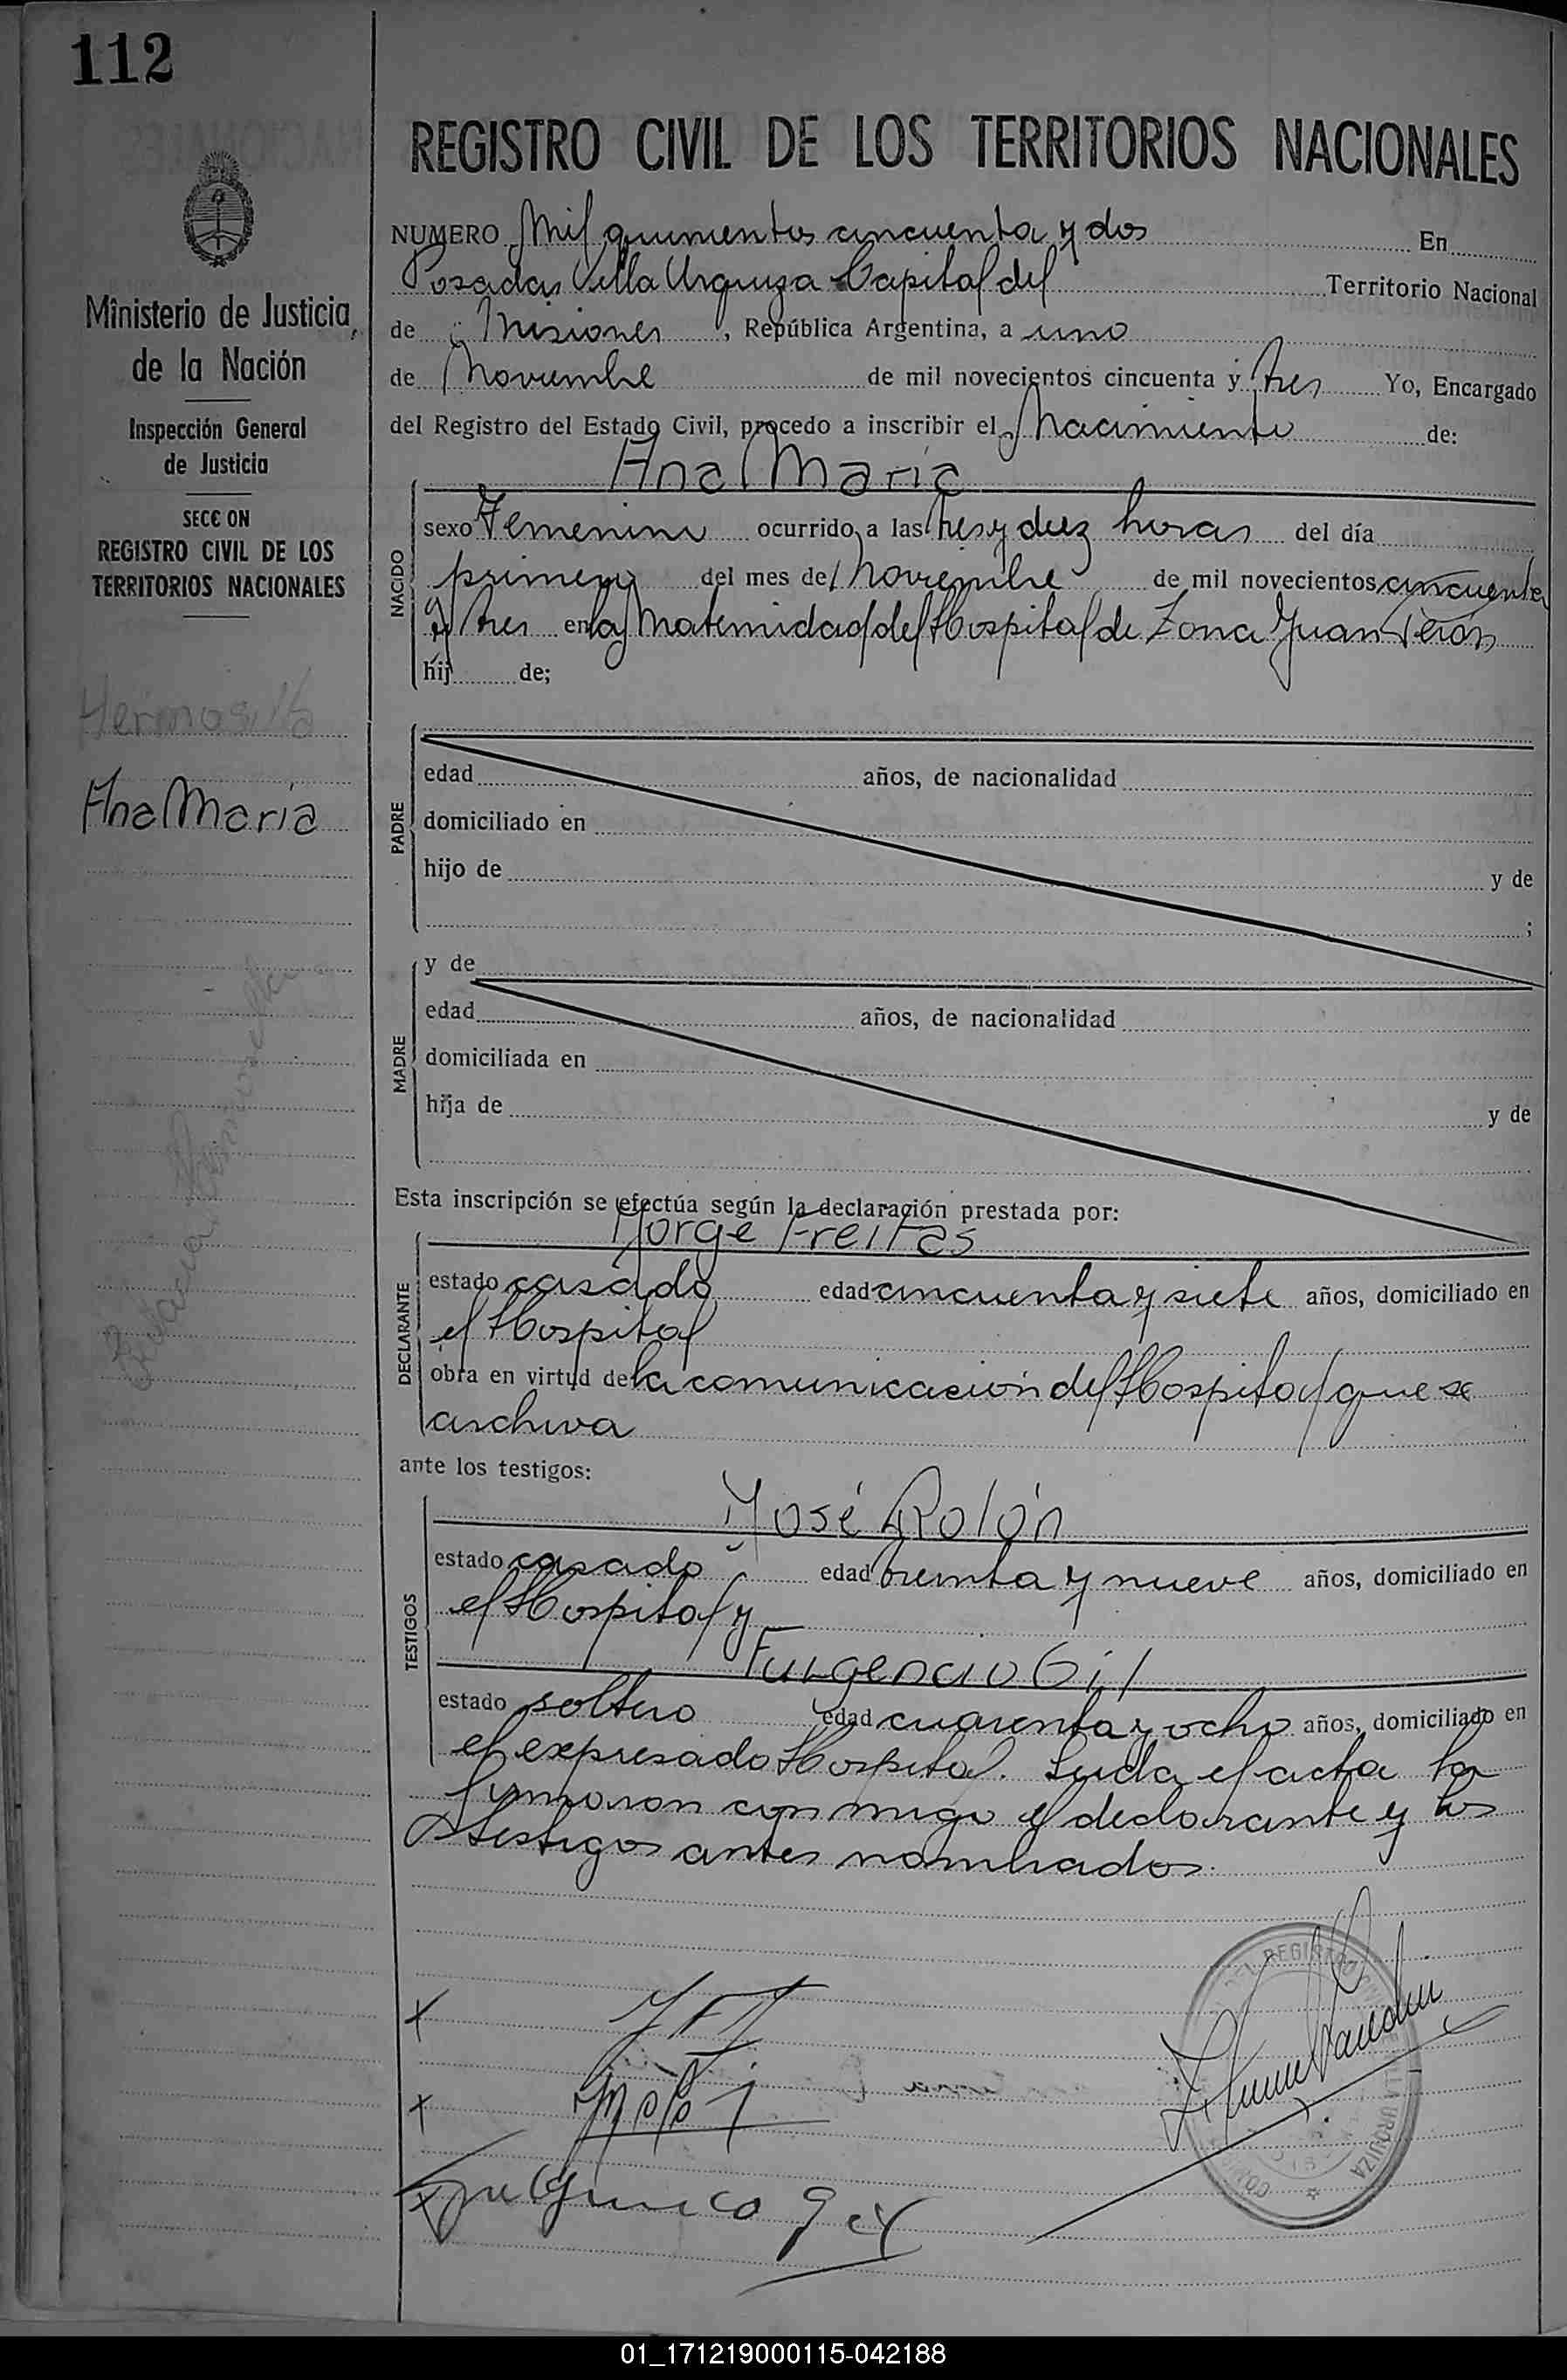 112
REGISTRO CIVIL DE LOS TERRITORIOS NACIONALES
Ministerio de Justicia
de la Nación
Inspección General
de Justicia
SECC ON
REGISTRO CIVIL DE LOS
TERRITORIOS NACIONALES
Hermosilla
Ana Maria
NUMERO Mil quinientos cincuenta y dos En
Posadas Villa Urquiza Capital del Territorio Nacional
de Misiones, República Argentina, a uno
de Noviembre de mil novecientos cincuenta y tres Yo, Encargado
del Registro del Estado Civil, procedo a inscribir el Nacimiento de:
Ana Maria
NACIDO
sexo Femenino ocurrido a las tres y diez horas del día
primero del mes de Noviembre de mil novecientos cincuenta
y tres en la Maternidad del Hospital de Zona Juan Perón
hij de;
PADRE
edad años, de nacionalidad
domiciliado en
hijo de y de
;
MADRE
y de
edad años, de nacionalidad
domiciliada en
hija de y de
Esta inscripción se efectúa según la declaración prestada por:
Jorge Freitas
DECLARANTE
estado casado edad cincuenta y siete años, domiciliado en
el Hospital
obra en virtud de la comunicación del Hospital que se
archiva
ante los testigos:
José Rolón
TESTIGOS
estado casado edad treinta y nueve años, domiciliado en
el Hospital y
Fulgencio Gil
estado soltero edad cuarenta y ocho años, domiciliado en
el expresado Hospital. Leida el acta la
firmaron con migo el declarante y los
testigos antes nombrados.
DEL REGISTRO
VILLA URQUIZA
01_171219000115-042188